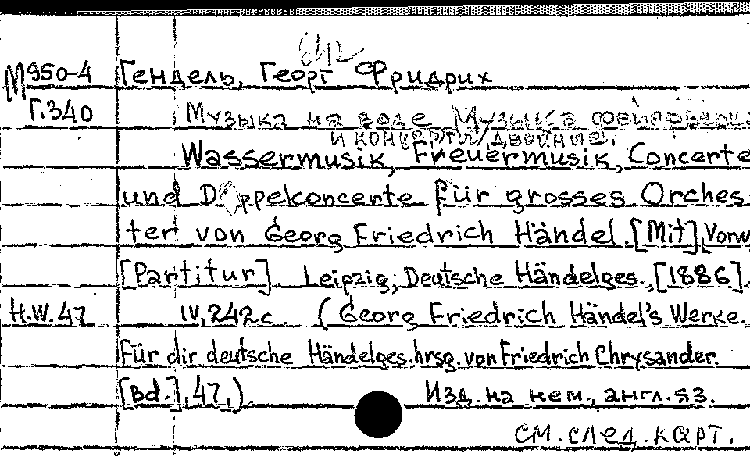 М950-4 Гендель, Георг Фридрих
Г.340 Музыка на воде Музыка фейерверка
и концерты двойные.
Wassermusik, Freuermusik, Concerte
und Doppelconcerte für grosses Orches-
ter von Georg Friedrich Händel. [Mit] Vorw.
[Partitur] Leipzig, Deutsche Händelges., [1886].
H.W.47 IV, 242 c. (Georg Friedrich Händel's Werke.
Für dir deutsche Händelges. hrsg. von Friedrich Chrysander
[Bd.], 47.)
Изд. на нем., англ. яз.
см. след. карт.